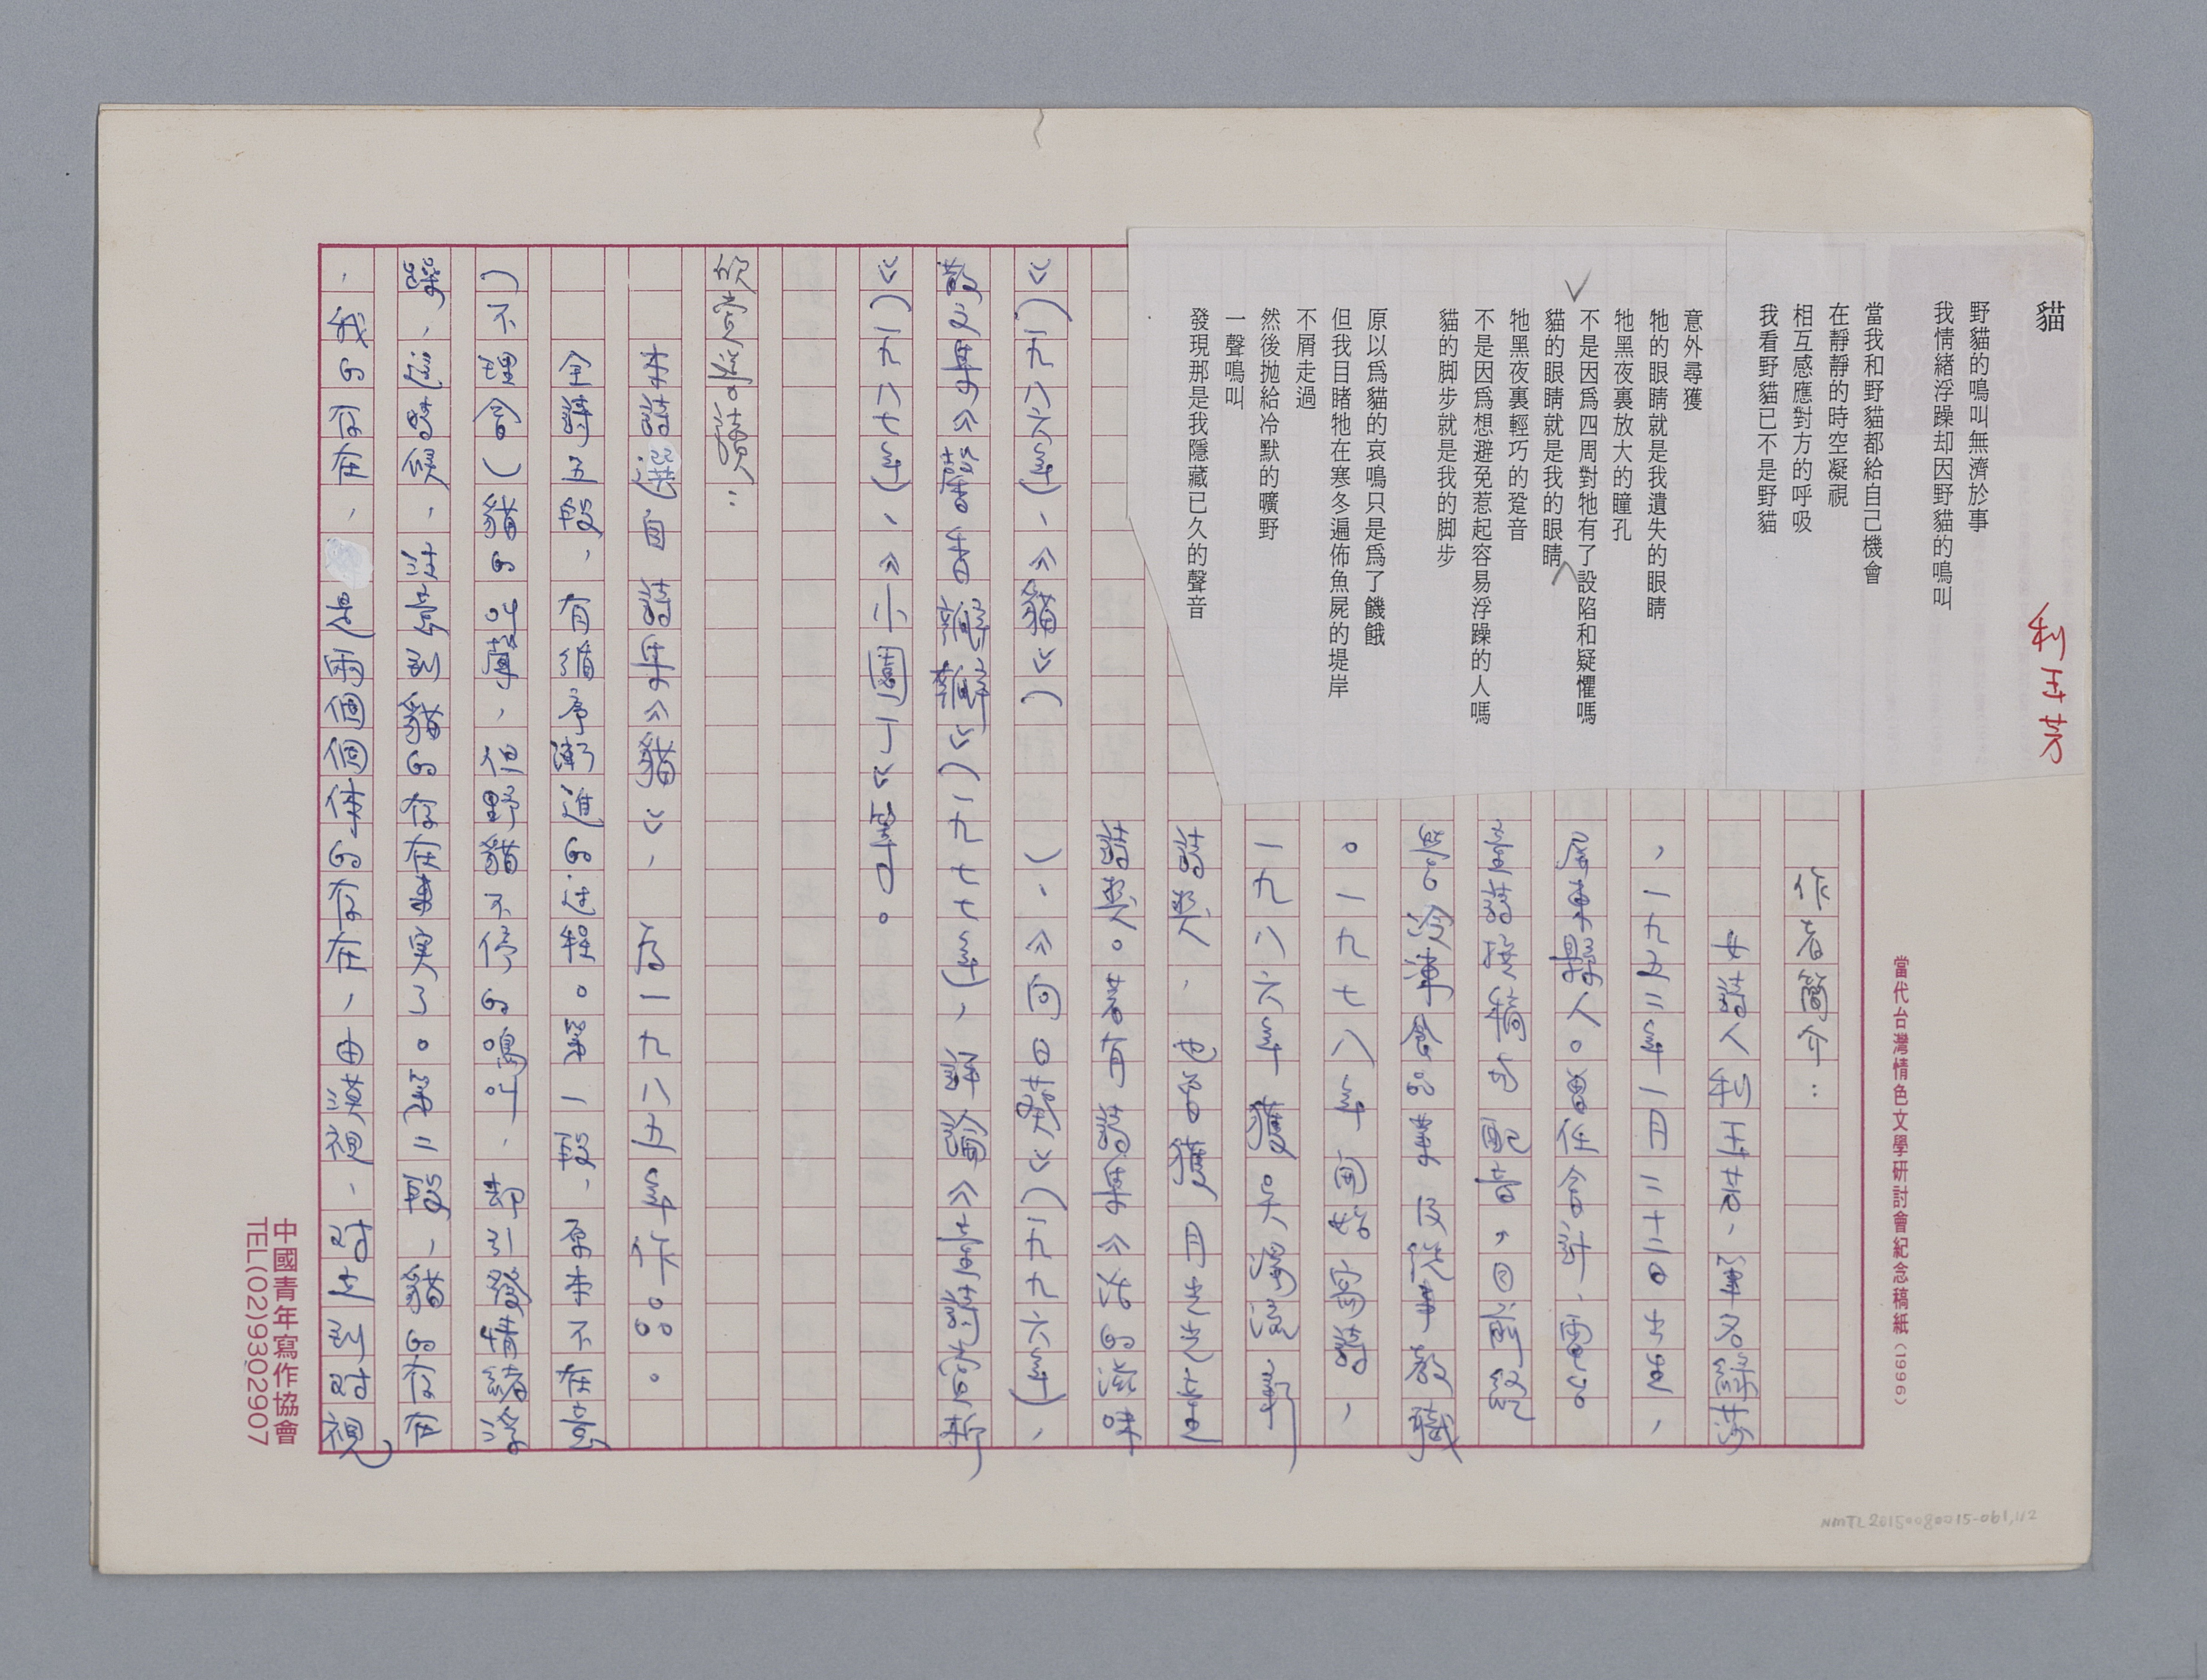 貓
利玉芳
野貓的鳴叫無濟於事
我情緒浮躁却因野貓的鳴叫
當我和野貓都給自己機會
在靜靜的時空凝視
相互感應對方的呼吸
我看野貓已不是野貓
意外尋獲
牠的眼睛就是我遺失的眼睛
牠黑夜裏放大的瞳孔
不是因爲四周對牠有了設陷和疑懼嗎
貓的眼睛就是我的眼睛
牠黑夜裏輕巧的跫音
不是因爲想避免惹起容易浮躁的人嗎
貓的脚步就是我的脚步
原以爲貓的哀鳴只是爲了饑餓
但我目睹牠在寒冬遍佈魚屍的堤岸
不屑走過
然後拋給冷默的曠野
一聲鳴叫
發現那是我隱藏已久的聲音
當代台灣情色文學研討會紀念稿紙(1996)
作者簡介：
女詩人利玉芳，筆名綠莎
，一九五二年一月二十二日出生，
屏東縣人。曾任會計，
。一九七八年開始寫詩，
一九八六年獲吳濁流文學
詩獎，也曾獲
詩獎。著有詩集《活的滋味
》(一九八六年)、《貓》(　)、《向日葵》(一九九六年)、
散文集《心香瓣瓣》(一九七七年)，評論《
》(一九八七年)、《小園丁》等。
欣賞導讀：
本詩選自詩集《貓》，為一九八五年作品。
全詩五段，有循序漸進的過程。第一段，原本不在意
(不理會)貓的叫聲，但野貓不停的鳴叫，卻引發情緒浮
躁，注意到貓的存在事實了。第二段，貓的存在
，我的存在，是兩個個体的存在，由漠視，對立到對視
中國青年寫作協會
TEL(02)9302907
NMTL20150080015-061,1/2